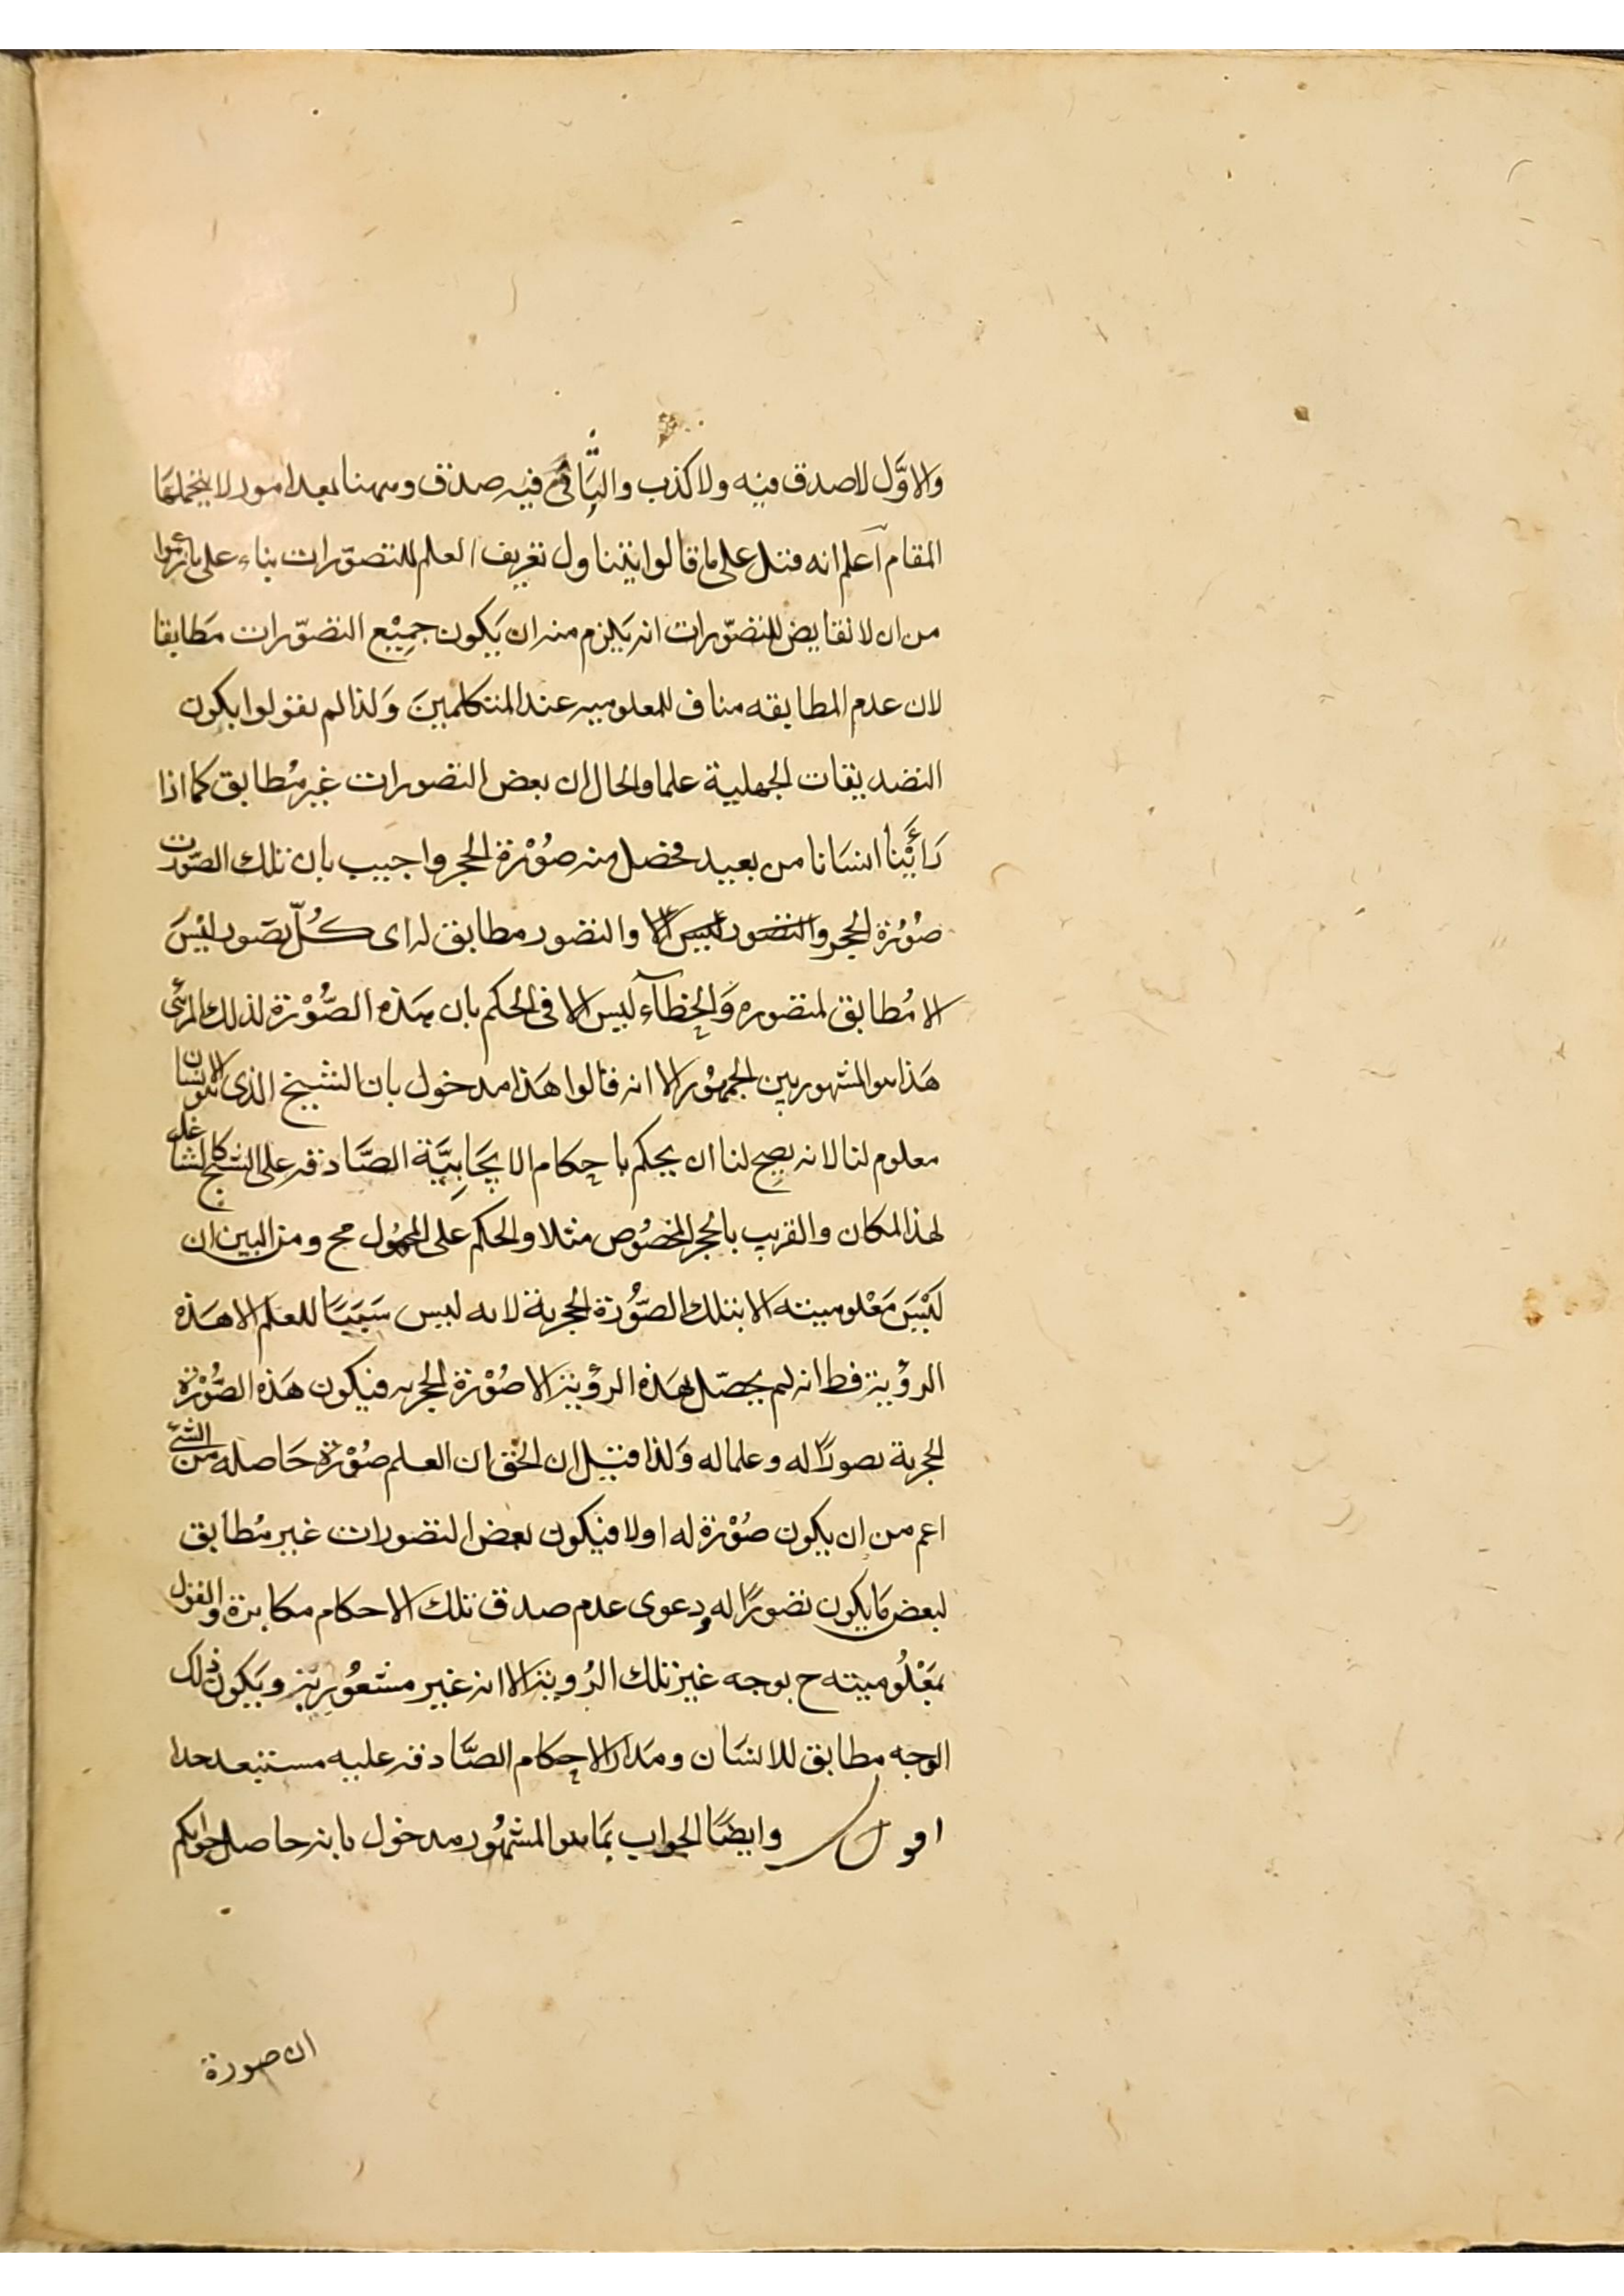 والاوَّل لا صدق فيه ولا كذب والثَّانى فيه صدق وههنا بعد امور لا يتحملها
المقام اعلم انه قيل على ما قالوا يتناول تعريف العلم للتصوّرات بناء على ما زعموا
من ان لا نقايض للتصوّرات انه يَلزم منه ان يَكون جمِيْع التصوّرات مَطابقا
لان عدم المطابقه مناف للمعلوميه عند المتكلمينَ وَلذا لم يقولوا بكون
التصديقات الجهلية علما والحال ان بعض التصورات غير مُطابق كما اذا
رَأَيْنا انسَانا من بعيد فحصل منه صُوْرة الحجر واجيب بان تلك الصّورت
صُوْرة الحجر والتصور ليس الا والتصور مطابق له اى كُلّ تصَور ليْسَ
الا مُطابق لمتصوره وَالخطآء ليس الا فى الحكم بان هذه الصُّوْرة لذلك المرئى
هَذا هو المشهور بين الجمهُور الا انه قالوا هَذا مدخول بان الشبح الذى هو الانسان
معلوم لنا لانه يصح لنا ان يحكم باحكام الايجَابِيَّة الصَّادقه على الشبح كالشاغل
لهذا المكان والقريب بالحجر المخصُوص مثلا والحكم على المجهُول مح ومن البين ان
لَيْسَ مَعْلوميته الا بتلك الصُّوْرة الحجرية لانه ليس سَبَبَا للعلم الا هَذه
الرؤية فقط انه لم يحصّل بهَذه الرؤية الا صُوْرة الحجريه فيكون هَذه الصُّوْرة
الحجرية تصورًا له وعلما له وَلذا قيل ان الحق ان العلم صُوْرة حَاصله من الشئ
اعم من ان يكون صُوْرة له اولا فيكون بعض التصورات غير مُطابق
لبعض مَا يكون تصورًا له ودعوى عدم صدق تلك الاحكام مكابرة والقول
بمَعْلُوميته ح بوجه غير تلك الرُوية الا انه غير مشعُور به ويَكون ذلك
الوجه مطابق للانسَان ومَدار الاحكام الصَّادقه عليه مستبعد جدا
اقول وايضًا الجواب بمَا هو المشهُور مدخول بانه حاصل جوابكم
ان صورة